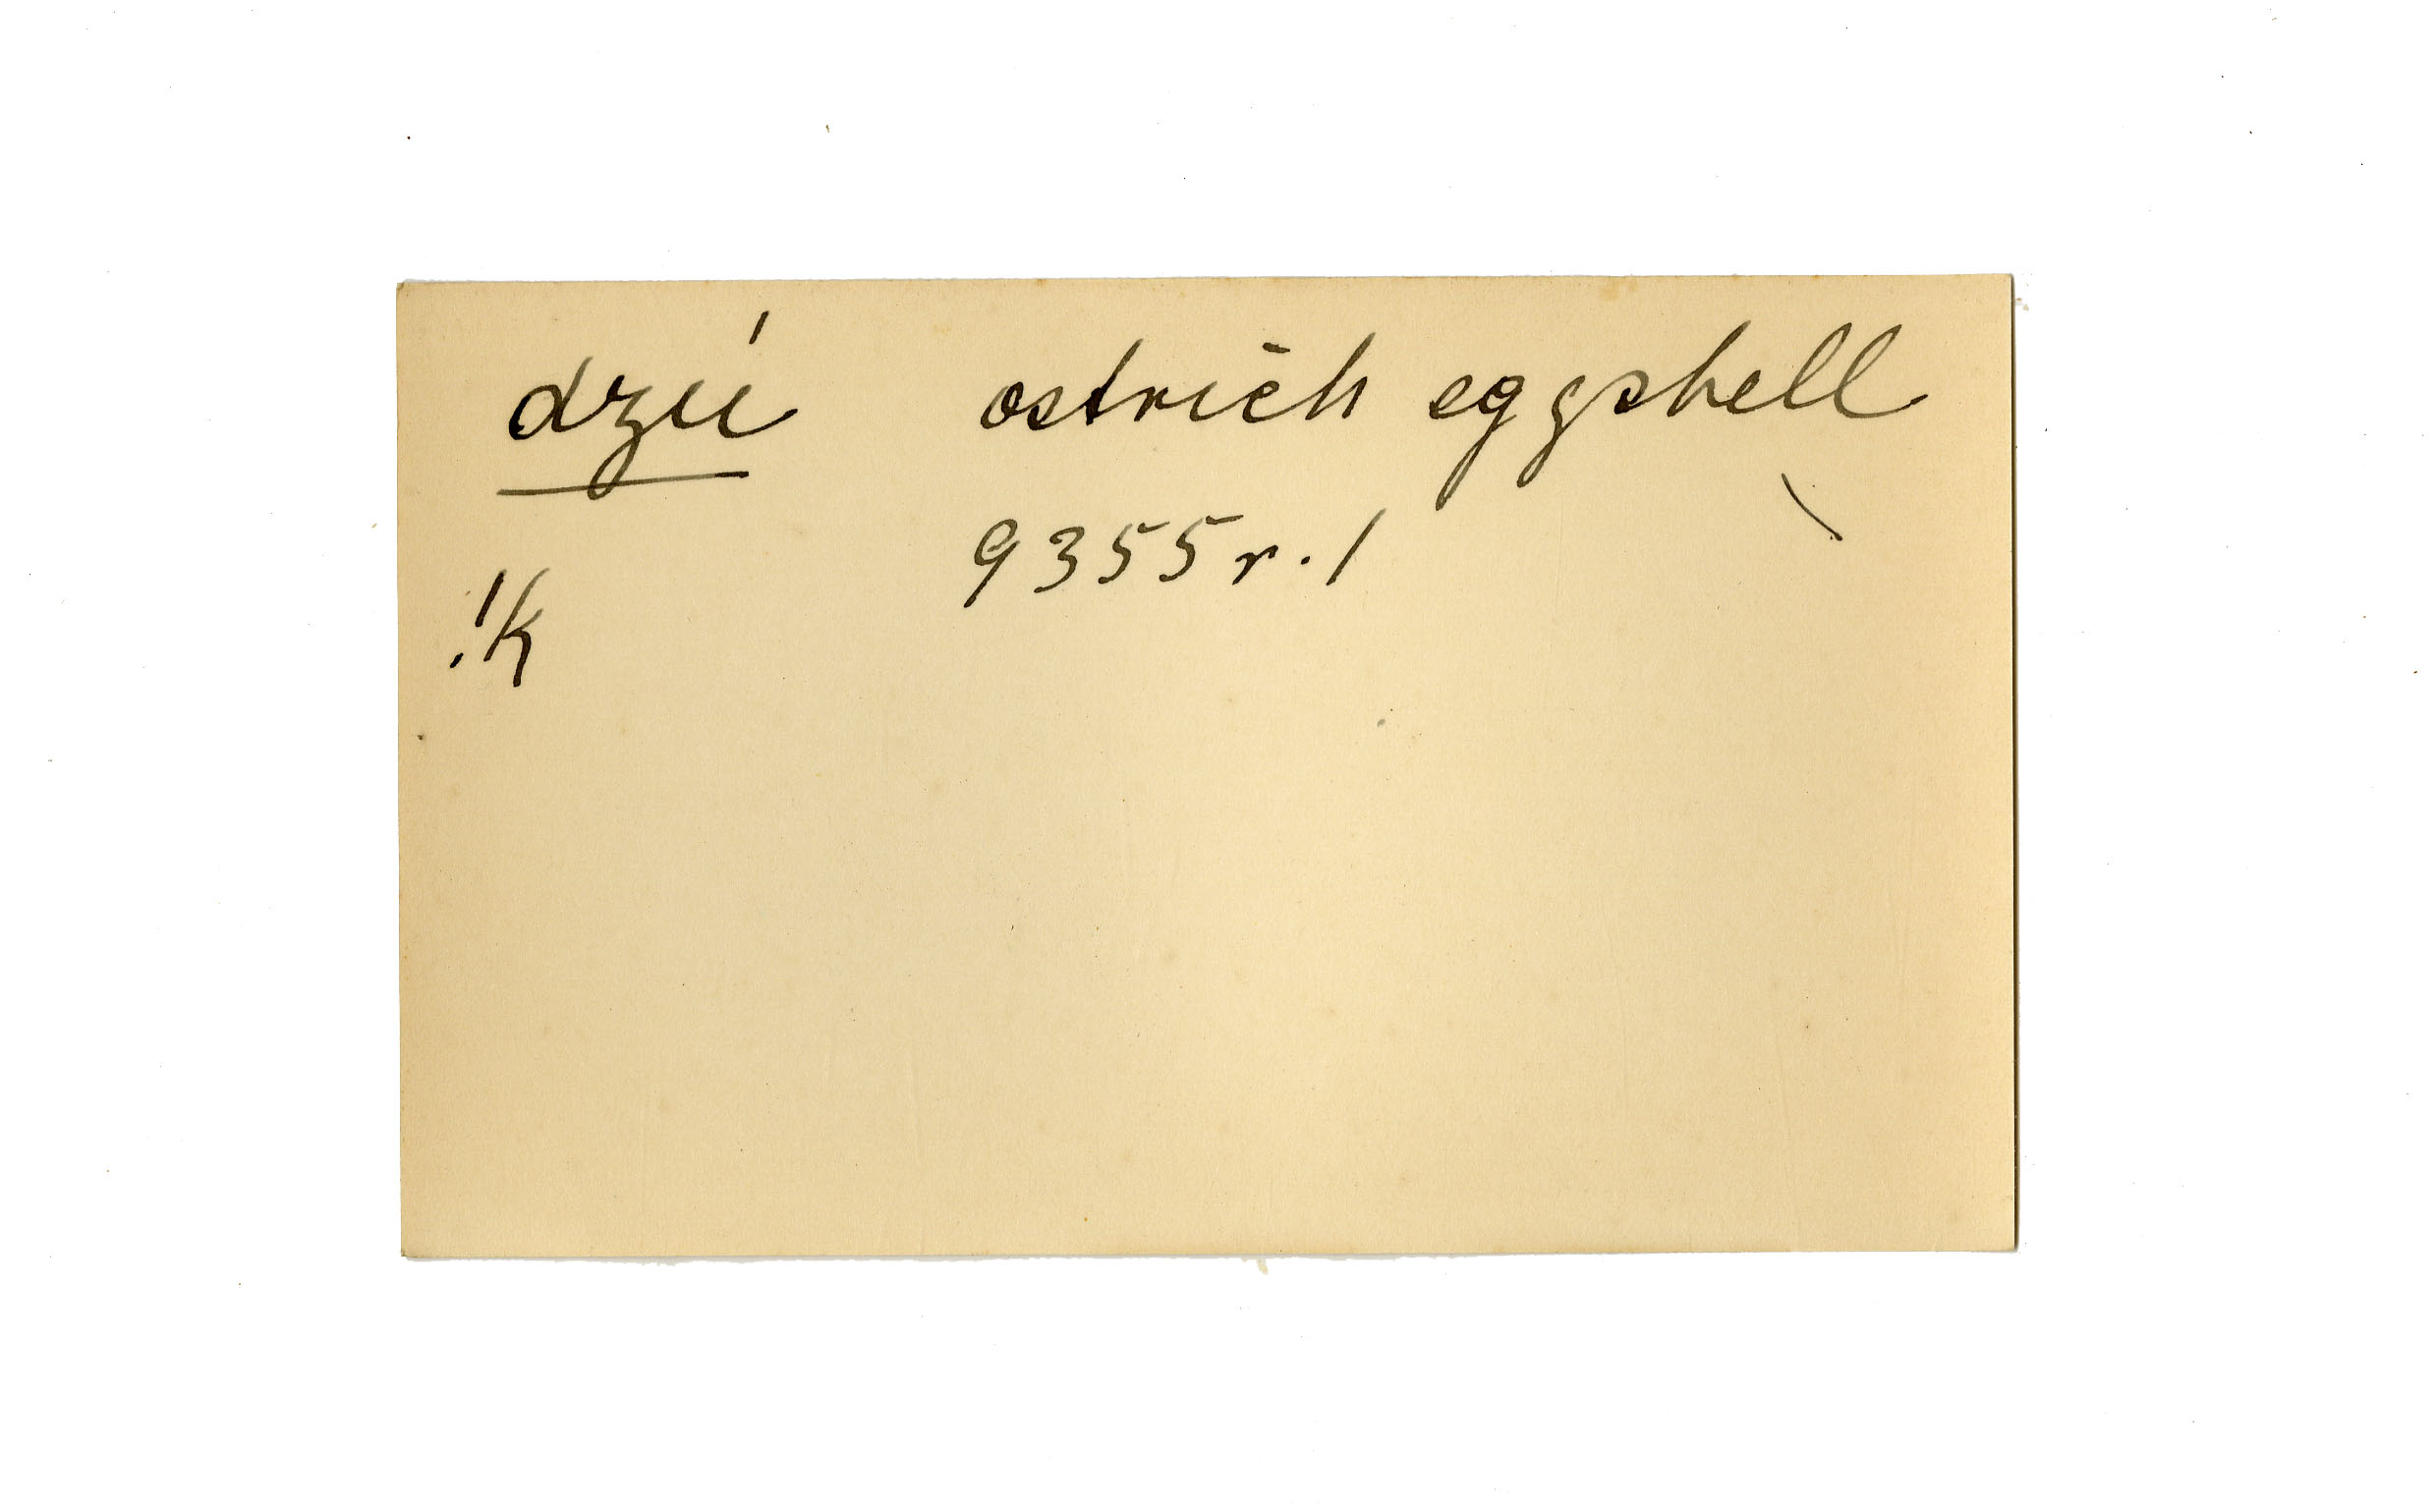 dzú ostrich eggshell
9355r.1
!k